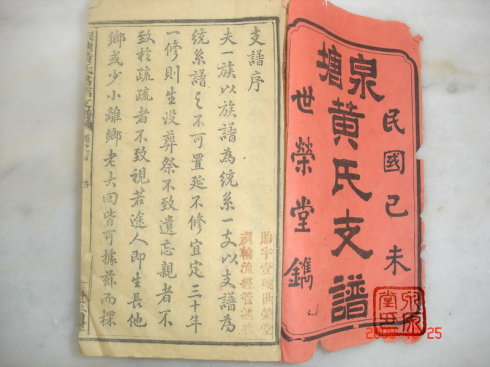 民國己未
泉塘黃氏支譜
世榮堂鐫
支譜序
夫一族以族譜為統系一支以支譜為
統系譜之不可置延不修宜定三十年
一修則生没葬祭不致遺忘親者不
致於疏疏者不致視若途人即生長他
鄉或少小離鄉老大回皆可據茲而探
字壹號
輪流經管